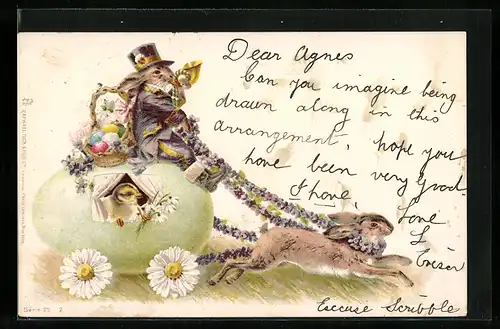 Dear Agnes
Can you imagine being
drawn along in this
arrangement, hope you
have been very good.
I have,
Love
Excuse Scribble
Serie 25 2